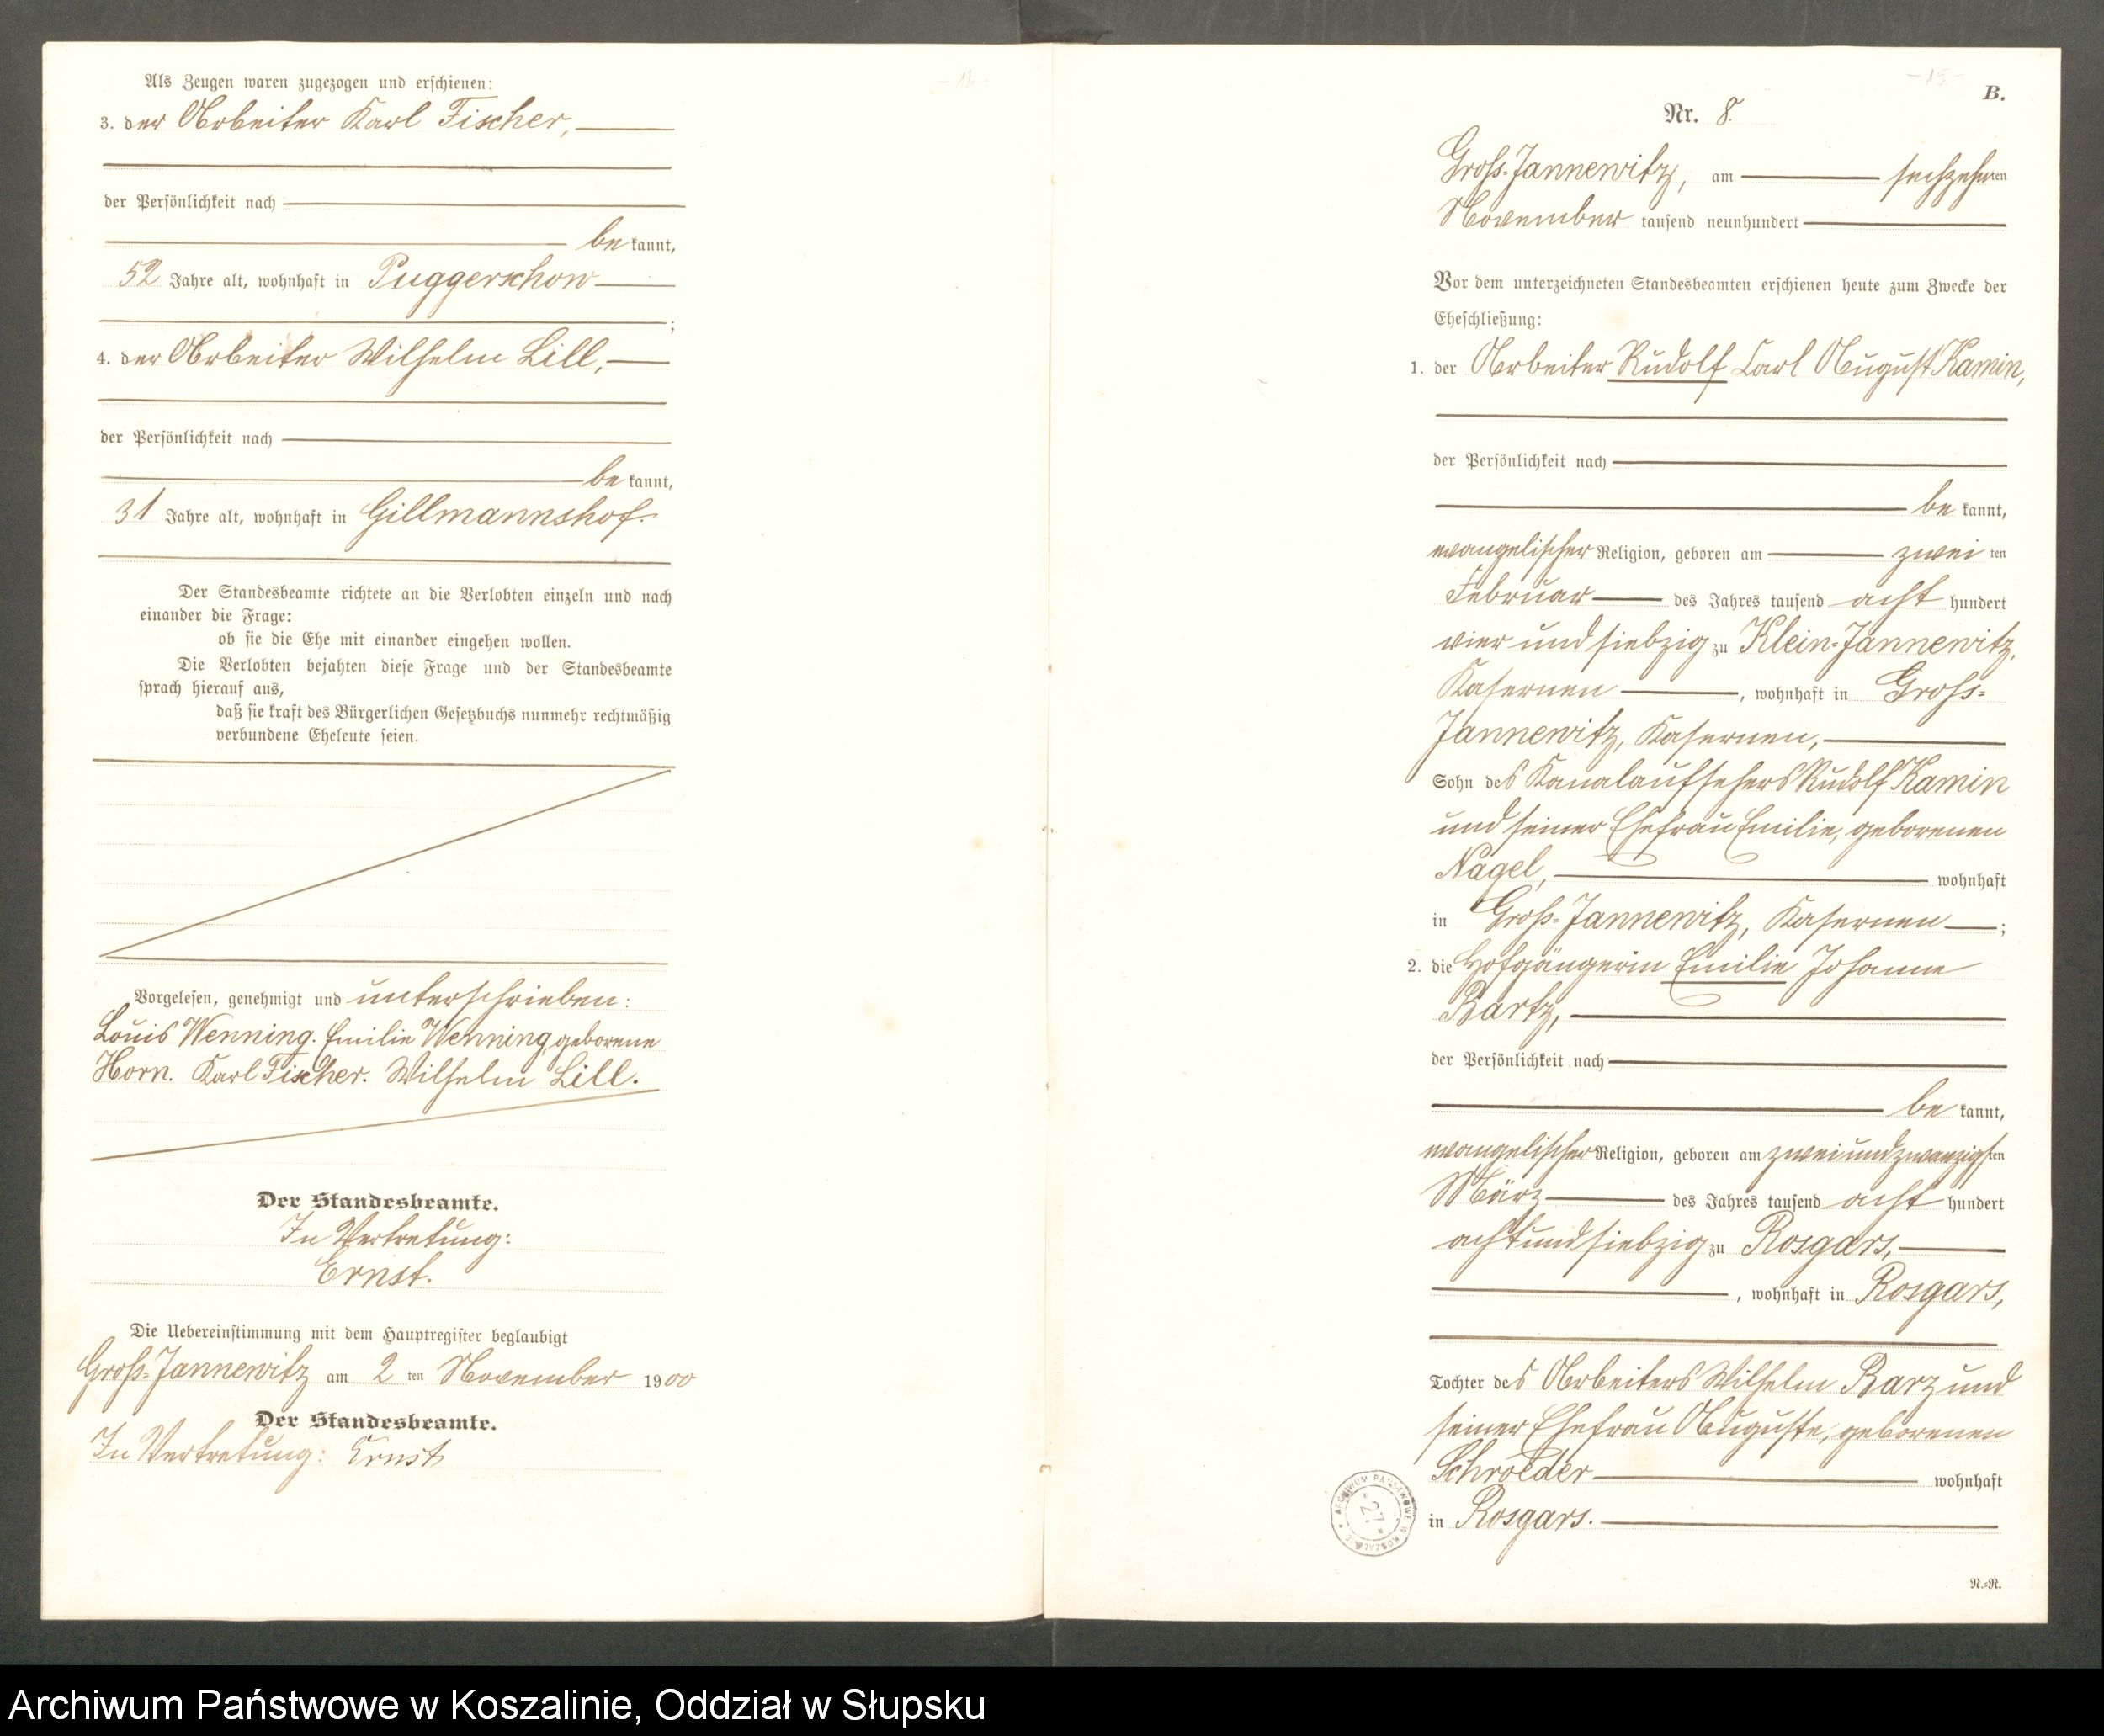 Als Zeugen waren zugezogen und erschienen:
3. der Arbeiter Karl Fischer,
der Persönlichkeit nach
be kannt,
52 Jahre alt, wohnhaft in Puggerschow
;
4. der Arbeiter Wilhelm Lill,
der Persönlichkeit nach
be kannt,
31 Jahre alt, wohnhaft in Gillmannshof.
Der Standesbeamte richtete an die Verlobten einzeln und nach
einander die Frage:
ob sie die Ehe mit einander eingehen wollen.
Die Verlobten bejahten diese Frage und der Standesbeamte
sprach hierauf aus,
daß sie kraft des Bürgerlichen Gesetzbuchs nunmehr rechtmäßig
verbundene Eheleute seien.
Vorgelesen, genehmigt und unterschrieben:
Louis Wenning. Emilie Wenning, geborene
Horn. Karl Fischer. Wilhelm Lill.
Der Standesbeamte.
In Vertretung:
Ernst.
Die Uebereinstimmung mit dem Hauptregister beglaubigt
Groß-Jannewitz am 2 ten November 1900
Der Standesbeamte.
In Vertretung: Ernst
- 15 -
B.
Nr. 8.
Groß-Jannewitz, am sechzehnten
November tausend neunhundert
Vor dem unterzeichneten Standesbeamten erschienen heute zum Zwecke der
Eheschließung:
1. der Arbeiter Rudolf Carl August Kamin,
der Persönlichkeit nach
be kannt,
evangelischer Religion, geboren am zwei ten
Februar des Jahres tausend acht hundert
vier und siebzig zu Klein-Jannewitz,
Kasernen, wohnhaft in Groß-
Jannewitz, Kasernen,
Sohn des Kanalaufsehers Rudolf Kamin
und seiner Ehefrau Emilie, geborenen
Nagel, wohnhaft
in Groß-Jannewitz, Kasernen;
2. die Hofgängerin Emilie Johanne
Bartz,
der Persönlichkeit nach
be kannt,
evangelischer Religion, geboren am zweiundzwanzigsten
März des Jahres tausend acht hundert
achtundsiebzig zu Rosgars,
, wohnhaft in Rosgars,
Tochter des Arbeiters Wilhelm Barz und
seiner Ehefrau Auguste, geborenen
Schroeder wohnhaft
in Rosgars.
ARCHIWUM PAŃSTWOWE W KOSZALINIE * 27 *
R.=R.
Archiwum Państwowe w Koszalinie, Oddział w Słupsku